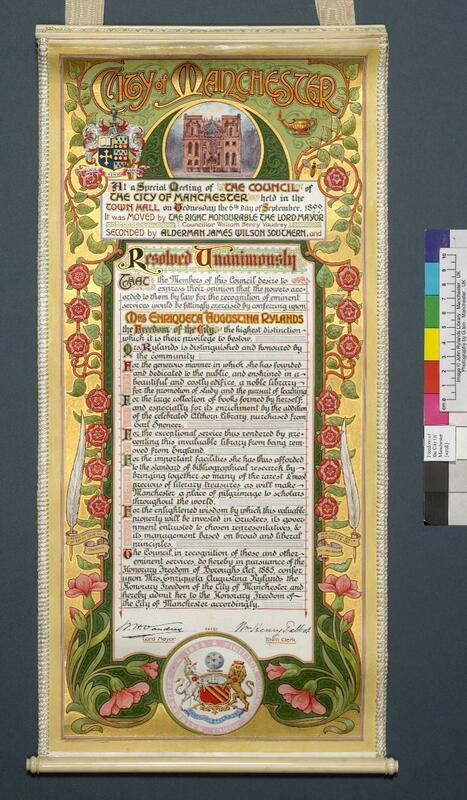 CITY of MANCHESTER
At a Special Meeting of THE COUNCIL of
THE CITY OF MANCHESTER held in the
TOWN HALL on Wednesday the 6th day of September, 1899
It was MOVED by THE RIGHT HONOURABLE THE LORD MAYOR
(Councillor William Henry Vaudrey)
SECONDED by ALDERMAN JAMES WILSON SOUTHERN, and
Resolved Unanimously
THAT the Members of this Council desire to
express their opinion that the powers acc-
orded to them by law for the recognition of eminent
services would be fittingly exercised by conferring upon
MRS ENRIQUETA AUGUSTINA RYLANDS
the Freedom of the City, the highest distinction
which it is their privilege to bestow.
Mrs Rylands is distinguished and honoured by
the community
For the generous manner in which she has founded
and dedicated to the public, and enshrined in a
beautiful and costly edifice, a noble library
for the promotion of study and the pursuit of learning
For the large collection of books formed by herself,
and especially for its enrichment by the addition
of the celebrated Althorp Library, purchased from
Earl Spencer.
For the exceptional service thus rendered by pre-
venting this invaluable library from being rem-
oved from England.
For the important facilities she has thus afforded
to the standard of bibliographical research by
bringing together so many of the rarest & most
precious of literary treasures as will make
Manchester a place of pilgrimage to scholars
throughout the world.
For the enlightened wisdom by which this valuable
property will be invested in Trustees, its gover-
nment entrusted to chosen representatives, &
its management based on broad and liberal
principles.
The Council, in recognition of these and other
eminent services, do hereby in pursuance of the
Honorary Freedom of Boroughs Act, 1885, confer
upon Mrs. Enriqueta Augustina Rylands the
Honorary Freedom of the City of Manchester, and
hereby admit her to the Honorary Freedom of
the City of Manchester accordingly.
W H Vaudrey
Wm Henry Talbot
Lord Mayor
Town Clerk